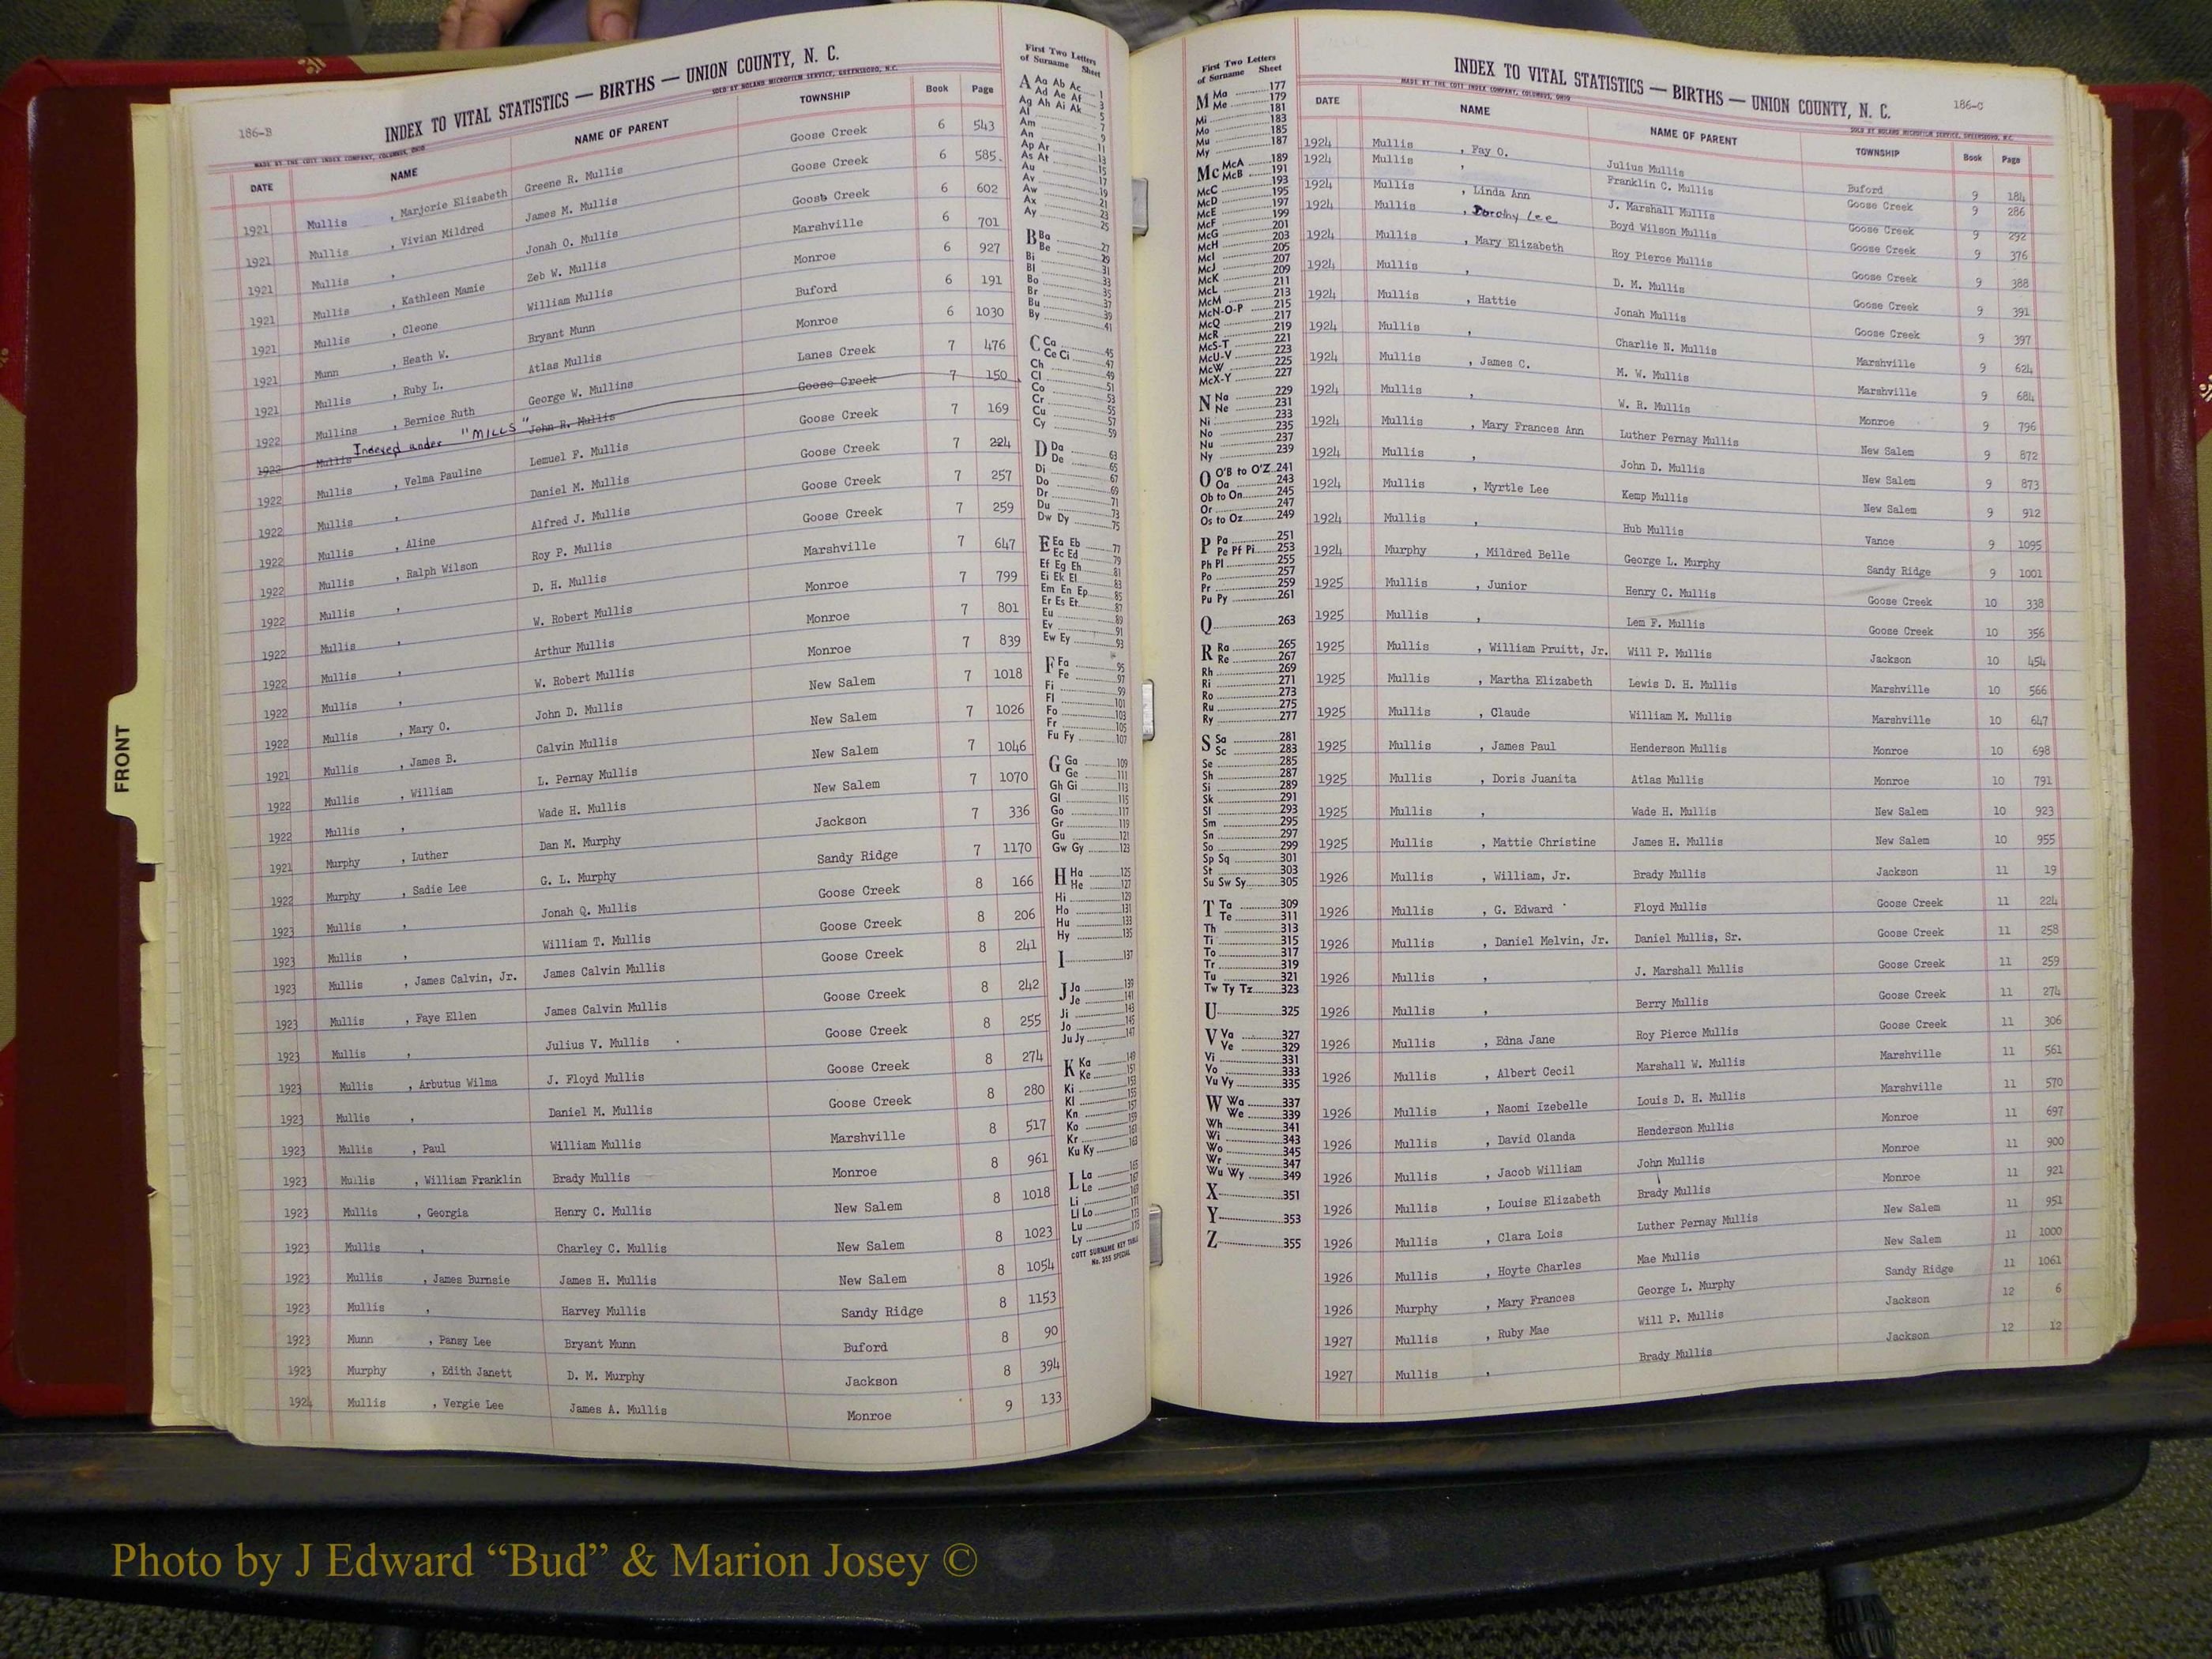 186-B
INDEX TO VITAL STATISTICS — BIRTHS — UNION COUNTY, N. C.
MADE BY THE COTT INDEX COMPANY, COLUMBUS, OHIO SOLD BY NOLAND MICROFILM SERVICE, GREENSBORO, N.C.
DATE NAME NAME OF PARENT TOWNSHIP Book Page
1921 Mullis , Marjorie Elizabeth Greene R. Mullis Goose Creek 6 543
1921 Mullis , Vivian Mildred James M. Mullis Goose Creek 6 585
1921 Mullis , Jonah O. Mullis Goose Creek 6 602
1921 Mullis , Kathleen Mamie Zeb W. Mullis Marshville 6 701
1921 Mullis , Cleone William Mullis Monroe 6 927
1921 Munn , Heath W. Bryant Munn Buford 6 191
1921 Mullis , Ruby L. Atlas Mullis Monroe 6 1030
1922 Mullins , Bernice Ruth George W. Mullins Lanes Creek 7 476
1922 Mullis Indexed under "MILLS" John R. Mullis Goose Creek 7 150
1922 Mullis , Velma Pauline Lemuel F. Mullis Goose Creek 7 169
1922 Mullis , Daniel M. Mullis Goose Creek 7 224
1922 Mullis , Aline Alfred J. Mullis Goose Creek 7 257
1922 Mullis , Ralph Wilson Roy P. Mullis Goose Creek 7 259
1922 Mullis , D. H. Mullis Marshville 7 647
1922 Mullis , W. Robert Mullis Monroe 7 799
1922 Mullis , Arthur Mullis Monroe 7 801
1922 Mullis , W. Robert Mullis Monroe 7 839
1922 Mullis , Mary O. John D. Mullis New Salem 7 1018
1921 Mullis , James B. Calvin Mullis New Salem 7 1026
1922 Mullis , William L. Pernay Mullis New Salem 7 1046
1922 Mullis , Wade H. Mullis New Salem 7 1070
1921 Murphy , Luther Dan M. Murphy Jackson 7 336
1922 Murphy , Sadie Lee G. L. Murphy Sandy Ridge 7 1170
1923 Mullis , Jonah Q. Mullis Goose Creek 8 166
1923 Mullis , William T. Mullis Goose Creek 8 206
1923 Mullis , James Calvin, Jr. James Calvin Mullis Goose Creek 8 241
1923 Mullis , Faye Ellen James Calvin Mullis Goose Creek 8 242
1923 Mullis , Julius V. Mullis Goose Creek 8 255
1923 Mullis , Arbutus Wilma J. Floyd Mullis Goose Creek 8 274
1923 Mullis , Daniel M. Mullis Goose Creek 8 280
1923 Mullis , Paul William Mullis Marshville 8 517
1923 Mullis , William Franklin Brady Mullis Monroe 8 961
1923 Mullis , Georgia Henry C. Mullis New Salem 8 1018
1923 Mullis , Charley C. Mullis New Salem 8 1023
1923 Mullis , James Burnsie James H. Mullis New Salem 8 1054
1923 Mullis , Harvey Mullis Sandy Ridge 8 1153
1923 Munn , Pansy Lee Bryant Munn Buford 8 90
1923 Murphy , Edith Janett D. M. Murphy Jackson 8 394
1924 Mullis , Vergie Lee James A. Mullis Monroe 9 133
First Two Letters
of Surname Sheet
A Aa Ab Ac 1
Ad Ae Af 3
Ag Ah Ai Ak 5
Al 7
Am 9
An 11
Ap Ar 13
As At 15
Au 17
Av 19
Aw 21
Ax 23
Ay 25
B Ba 27
Be 29
Bi 31
Bl 33
Bo 35
Br 37
Bu 39
By 41
C Ca 45
Ce Ci 47
Ch 49
Cl 51
Co 53
Cr 55
Cu 57
Cy 59
D Da 63
De 65
Di 67
Do 69
Dr 71
Du 73
Dw Dy 75
E Ea Eb 77
Ec Ed 79
Ef Eg Eh 81
Ei Ek El 83
Em En Ep 85
Er Es Et 87
Eu 89
Ev 91
Ew Ey 93
F Fa 95
Fe 97
Fi 99
Fl 101
Fo 103
Fr 105
Fu Fy 107
G Ga 109
Ge 111
Gh Gi 113
Gl 115
Go 117
Gr 119
Gu 121
Gw Gy 123
H Ha 125
He 127
Hi 129
Ho 131
Hu 133
Hy 135
I 137
J Ja 139
Je 141
Ji 143
Jo 145
Ju Jy 147
K Ka 149
Ke 151
Ki 153
Kl 155
Kn 157
Ko 159
Kr 161
Ku Ky 163
L La 165
Le 167
Li 169
Ll Lo 171
Lu 173
Ly 175
COTT SURNAME KEY TABLE
No. 355 SPECIAL
FRONT
First Two Letters
of Surname Sheet
M Ma 177
Me 179
Mi 181
Mo 183
Mu 185
My 187
Mc McA 189
McB 191
McC 193
McD 195
McE 197
McF 199
McG 201
McH 203
McI 205
McJ 207
McK 209
McL 211
McM 213
McN-O-P 215
McQ 217
McR 219
McS-T 221
McU-V 223
McW 225
McX-Y 227
N Na 229
Ne 231
Ni 233
No 235
Nu 237
Ny 239
O O'B to O'Z 241
Oa 243
Ob to On 245
Or 247
Os to Oz 249
P Pa 251
Pe Pf Pi 253
Ph Pl 255
Po 257
Pr 259
Pu Py 261
Q 263
R Ra 265
Re 267
Rh 269
Ri 271
Ro 273
Ru 275
Ry 277
S Sa 281
Sc 283
Se 285
Sh 287
Si 289
Sk 291
Sl 293
Sm 295
Sn 297
So 299
Sp Sq 301
St 303
Su Sw Sy 305
T Ta 309
Te 311
Th 313
Ti 315
To 317
Tr 319
Tu 321
Tw Ty Tz 323
U 325
V Va 327
Ve 329
Vi 331
Vo 333
Vu Vy 335
W Wa 337
We 339
Wh 341
Wi 343
Wo 345
Wr 347
Wu Wy 349
X 351
Y 353
Z 355
186-C
INDEX TO VITAL STATISTICS — BIRTHS — UNION COUNTY, N. C.
MADE BY THE COTT INDEX COMPANY, COLUMBUS, OHIO SOLD BY NOLAND MICROFILM SERVICE, GREENSBORO, N.C.
DATE NAME NAME OF PARENT TOWNSHIP Book Page
1924 Mullis , Fay O. Julius Mullis Buford 9 184
1924 Mullis , Franklin C. Mullis Goose Creek 9 286
1924 Mullis , Linda Ann J. Marshall Mullis Goose Creek 9 292
1924 Mullis , Dorothy Lee Boyd Wilson Mullis Goose Creek 9 376
1924 Mullis , Mary Elizabeth Roy Pierce Mullis Goose Creek 9 388
1924 Mullis , D. M. Mullis Goose Creek 9 391
1924 Mullis , Hattie Jonah Mullis Goose Creek 9 397
1924 Mullis , Charlie N. Mullis Marshville 9 624
1924 Mullis , James C. M. W. Mullis Marshville 9 684
1924 Mullis , W. R. Mullis Monroe 9 796
1924 Mullis , Mary Frances Ann Luther Pernay Mullis New Salem 9 872
1924 Mullis , John D. Mullis New Salem 9 873
1924 Mullis , Myrtle Lee Kemp Mullis New Salem 9 912
1924 Mullis , Hub Mullis Vance 9 1095
1924 Murphy , Mildred Belle George L. Murphy Sandy Ridge 9 1001
1925 Mullis , Junior Henry C. Mullis Goose Creek 10 338
1925 Mullis , Lem F. Mullis Goose Creek 10 356
1925 Mullis , William Pruitt, Jr. Will P. Mullis Jackson 10 454
1925 Mullis , Martha Elizabeth Lewis D. H. Mullis Marshville 10 566
1925 Mullis , Claude William M. Mullis Marshville 10 647
1925 Mullis , James Paul Henderson Mullis Monroe 10 698
1925 Mullis , Doris Juanita Atlas Mullis Monroe 10 791
1925 Mullis , Wade H. Mullis New Salem 10 923
1925 Mullis , Mattie Christine James H. Mullis New Salem 10 955
1926 Mullis , William, Jr. Brady Mullis Jackson 11 19
1926 Mullis , G. Edward Floyd Mullis Goose Creek 11 224
1926 Mullis , Daniel Melvin, Jr. Daniel Mullis, Sr. Goose Creek 11 258
1926 Mullis , J. Marshall Mullis Goose Creek 11 259
1926 Mullis , Berry Mullis Goose Creek 11 274
1926 Mullis , Edna Jane Roy Pierce Mullis Goose Creek 11 306
1926 Mullis , Albert Cecil Marshall W. Mullis Marshville 11 561
1926 Mullis , Naomi Izebelle Louis D. H. Mullis Marshville 11 570
1926 Mullis , David Olanda Henderson Mullis Monroe 11 697
1926 Mullis , Jacob William John Mullis Monroe 11 900
1926 Mullis , Louise Elizabeth Brady Mullis Monroe 11 921
1926 Mullis , Clara Lois Luther Pernay Mullis New Salem 11 951
1926 Mullis , Hoyte Charles Mae Mullis New Salem 11 1000
1926 Murphy , Mary Frances George L. Murphy Sandy Ridge 11 1061
1927 Mullis , Ruby Mae Will P. Mullis Jackson 12 6
1927 Mullis , Brady Mullis Jackson 12 12
Photo by J Edward “Bud” & Marion Josey ©